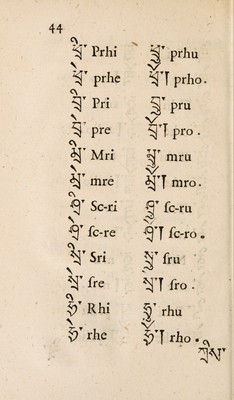 44
ཕྲི་ Prhi ཕྲུ་ prhu
ཕྲེ་ prhe ཕྲོ་། prho.
བྲི་ Pri བྲུ་ pru
བྲེ་ pre བྲོ་། pro.
མྲི་ Mri མྲུ་ mru
མྲེ་ mre མྲོ་། mro.
ཤྲི་ Sc-ri ཤྲུ་ ſc-ru
ཤྲེ་ ſc-re ཤྲོ་། ſc-ro.
སྲི་ Sri སྲུ་ ſru
སྲེ་ ſre སྲོ་། ſro.
ཧྲི་ Rhi ཧྲུ་ rhu
ཧྲེ་ rhe ཧྲོ་། rho.